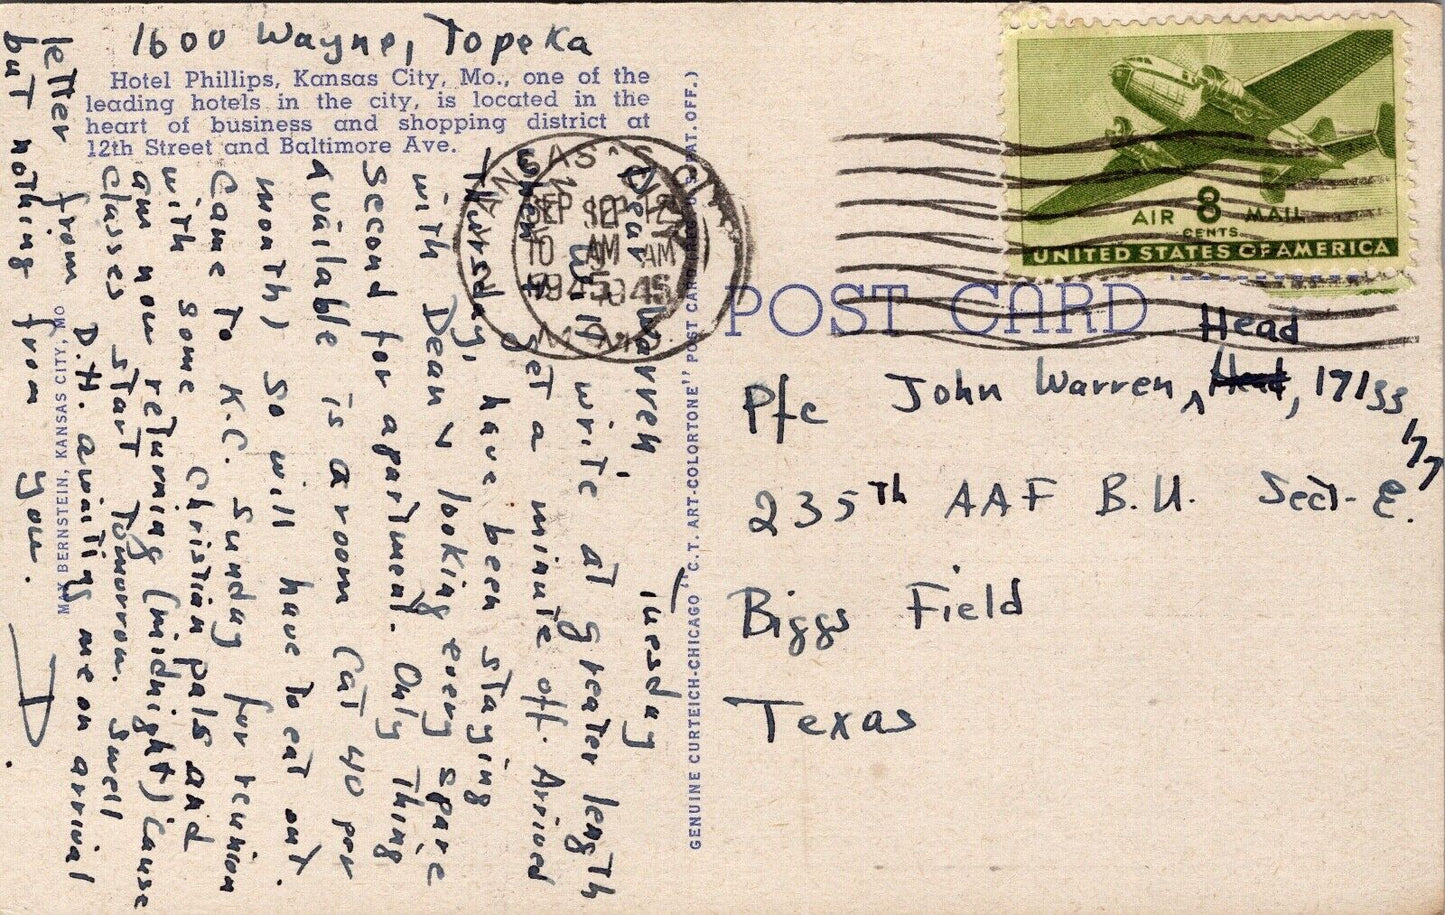 1600 Wayne, Topeka
Hotel Phillips, Kansas City, Mo., one of the
leading hotels in the city, is located in the
heart of business and shopping district at
12th Street and Baltimore Ave.
Tuesday
Dear Warren,
Will write at greater length
when I get a minute off. Arrived
Thursday, have been staying
with Dean & looking every spare
second for apartment. Only thing
available is a room (at 40 per
month) so will have to eat out.
Came to K.C. Sunday for reunion
with some Christian pals and
am now returning (midnight) cause
classes start tomorrow. Swell
letter from D.H. awaiting me on arrival
but nothing from you.
D.
MAX BERNSTEIN, KANSAS CITY, MO
GENUINE CURTEICH-CHICAGO "C.T. ART-COLORTONE" POST CARD (REG. U.S. PAT. OFF.)
KANSAS CITY
SEP 12
10 AM
1945
MO.
AIR 8 MAIL
CENTS
UNITED STATES OF AMERICA
POST CARD
Head
Pfc John Warren, 171
235th AAF B.U. Sect-E.
Biggs Field
Texas